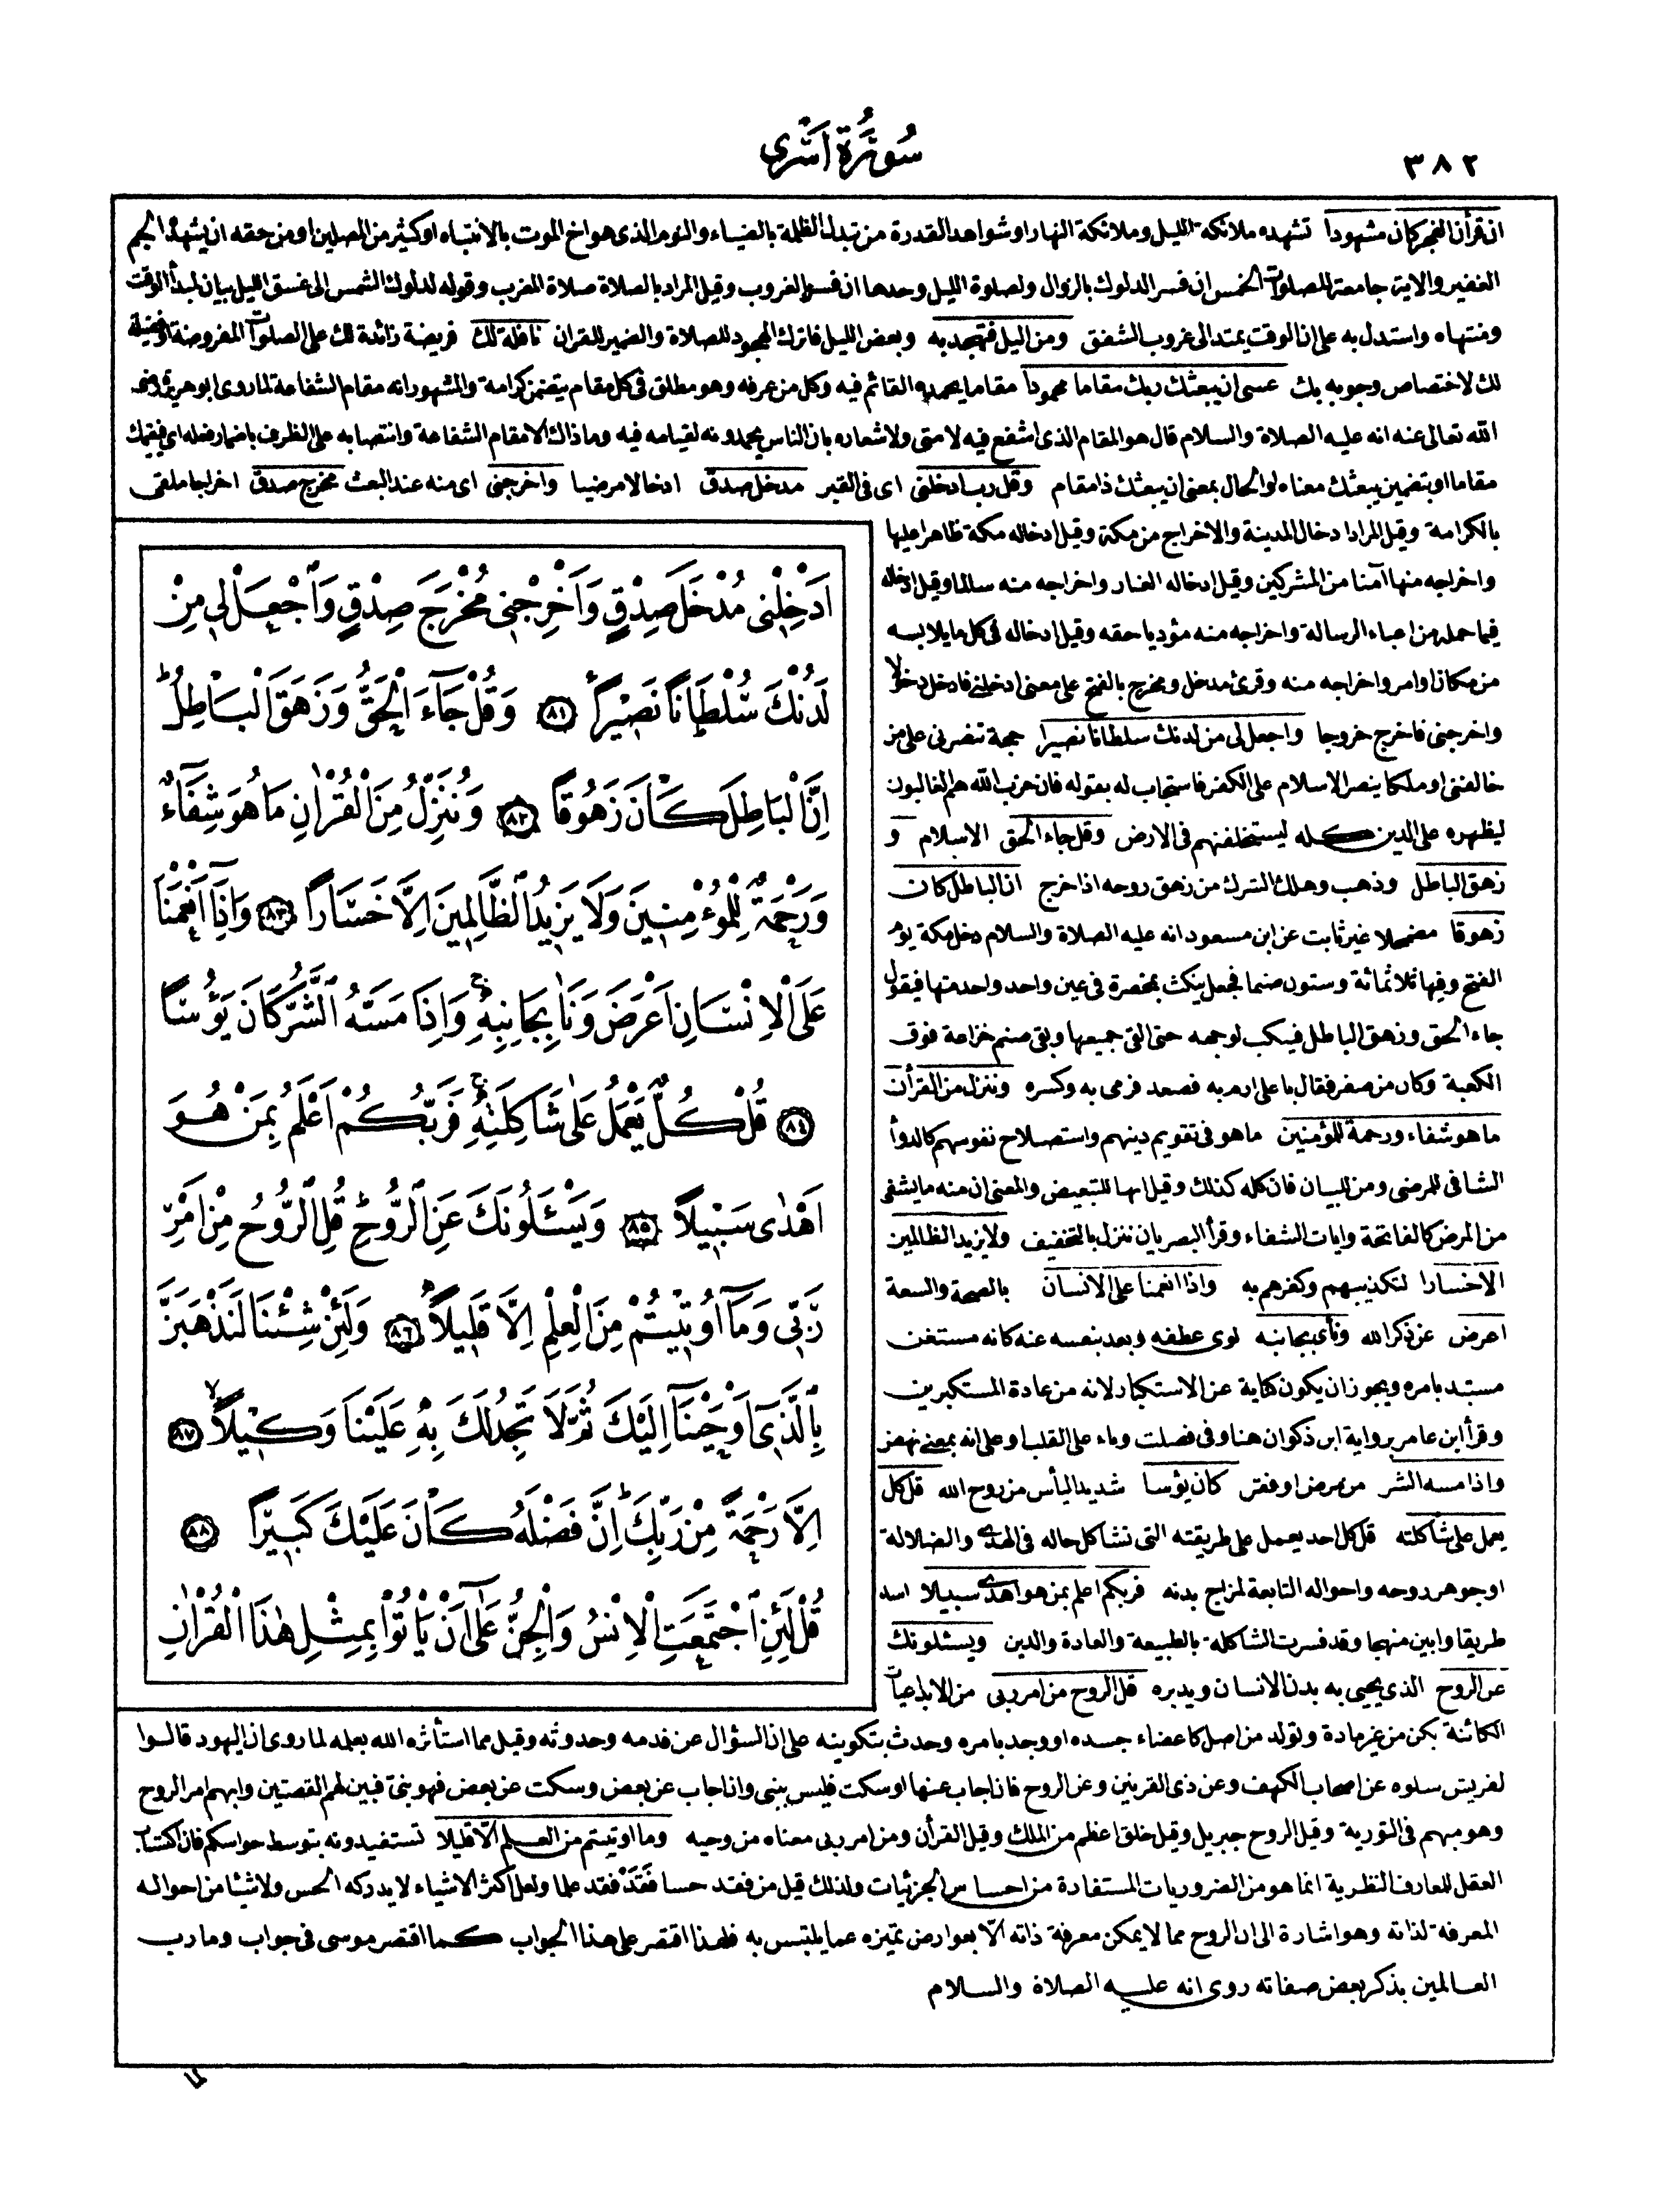 ٣٨٢
سُورَةُ اَسْرٰى
ان قرأن الفجر كان مشهودا تشهده ملائكة الليل وملائكة النهار او شواهد القدرة من تبدل الظلمة بالضياء والنوم الذى هو اخ الموت بالانتباه او كثير من المصلين او من حقه ان يشهده الجم
الغفير والاية جامعة للصلوات الخمس ان فسر الدلوك بالزوال ولصلوة الليل وحدها ان فسر بالغروب وقيل المراد بالصلاة صلاة المغرب وقوله لدلوك الشمس الى غسق الليل بيان لمبدأ الوقت
ومنتهاه واستدل به على ان الوقت يمتد الى غروب الشفق ومن اليل فتهجد به وبعض الليل فاترك الهجود للصلاة والضمير للقران نافلة لك فريضة زائدة لك على الصلوات المفروضة او فضيلة
لك لاختصاص وجوبه بك عسى ان يبعثك ربك مقاما محمودا مقاما يحمده القائم فيه وكل من عرفه وهو مطلق فى كل مقام يتضمن كرامة والمشهور انه مقام الشفاعة لما روى ابو هريرة رضى
الله تعالى عنه انه عليه الصلاة والسلام قال هو المقام الذى اشفع فيه لامتى ولاشعاره بان الناس يحمدونه لقيامه فيه وما ذاك الا مقام الشفاعة وانتصابه على الظرف باضمار فعله اى فيقيمك
مقاما او بتضمين يبعثك معناه او الحال بمعنى ان يبعثك ذا مقام وقل رب ادخلنى اى فى القبر مدخل صدق ادخالا مرضيا واخرجنى اى منه عند البعث مخرج صدق اخراجا ملقى
بالكرامة وقيل المراد ادخال المدينة والاخراج من مكة وقيل ادخاله مكة ظاهرا عليها
واخراجه منها آمنا من المشركين وقيل ادخاله الغار واخراجه منه سالما وقيل ادخاله
فيما حمله من اعباء الرسالة واخراجه منه مؤديا حقه وقيل ادخاله فى كل ما يلابسه
من مكان او امر واخراجه منه وقرئ مدخل ومخرج بالفتح على معنى ادخلنى فادخل دخولا
واخرجنى فاخرج خروجا واجعل لى من لدنك سلطانا نصيرا حجة تنصرنى على من
خالفنى او ملكا ينصر الاسلام على الكفر فاستجاب له بقوله فان حزب الله هم الغالبون
ليظهره على الدين كله ليستخلفنهم فى الارض وقل جاء الحق الاسلام و
زهق الباطل وذهب وهلك الشرك من زهق روحه اذا خرج ان الباطل كان
زهوقا مضمحلا غير ثابت عن ابن مسعود انه عليه الصلاة والسلام دخل مكة يوم
الفتح وفيها ثلاثمائة وستون صنما فجعل ينكث بمخصرة فى عين واحد واحد منها فيقول
جاء الحق وزهق الباطل فينكب لوجهه حتى القى جميعها وبقى صنم خزاعة فوق
الكعبة وكان من صفر فقال يا على ارم به فصعد فرمى به وكسره وننزل من القرأن
ما هو شفاء ورحمة للمؤمنين ما هو فى تقويم دينهم واستصلاح نفوسهم كالدواء
الشافى للمرضى ومن للبيان فان كله كذلك وقيل انها للتبعيض والمعنى ان منه ما يشفى
من المرض كالفاتحة وايات الشفاء وقرأ البصريان ننزل بالتخفيف ولا يزيد الظالمين
الا خسارا لتكذيبهم وكفرهم به واذا انعمنا على الانسان بالصحة والسعة
اعرض عن ذكر الله ونأى بجانبه لوى عطفه وبعد بنفسه عنه كانه مستغن
مستبد بامره ويجوز ان يكون كناية عن الاستكبار لانه من عادة المستكبرين
وقرأ ابن عامر برواية ابن ذكوان هنا وفى فصلت وناء على القلب او على انه بمعنى نهض
واذا مسه الشر من مرض او فقر كان يؤسا شديد اليأس من روح الله قل كل
يعمل على شاكلته قل كل احد يعمل على طريقته التى تشاكل حاله فى الهدى والضلالة
او جوهر روحه واحواله التابعة لمزاج بدنه فربكم اعلم بمن هو اهدى سبيلا اسد
طريقا وابين منهجا وقد فسرت الشاكلة بالطبيعة والعادة والدين ويسئلونك
عن الروح الذى يحيى به بدن الانسان ويدبره قل الروح من امر ربى من الابداعيات
الكائنة بكن من غير مادة وتولد من اصل كاعضاء جسده او وجد بامره وحدث بتكوينه على ان السؤال عن قدمه وحدوثه وقيل مما استأثره الله بعلمه لما روى ان اليهود قالوا
لقريش سلوه عن اصحاب الكهف وعن ذى القرنين وعن الروح فان اجاب عنها او سكت فليس بنبى وان اجاب عن بعض وسكت عن بعض فهو نبى فبين لهم القصتين وابهم امر الروح
وهو مبهم فى التورية وقيل الروح جبريل وقيل خلق اعظم من الملك وقيل القرأن ومن امر ربى معناه من وحيه وما اوتيتم من العلم الا قليلا تستفيدونه بتوسط حواسكم فان اكتساب
العقل للمعارف النظرية انما هو من الضروريات المستفادة من احساس الجزئيات ولذلك قيل من فقد حسا فقد فقد علما ولعل اكثر الاشياء لا يدركه الحس ولا شيئا من احواله
المعرفة لذاته وهو اشارة الى ان الروح مما لا يمكن معرفة ذاته الا بعوارض تميزه عما يلتبس به فلهذا اقتصر على هذا الجواب كما اقتصر موسى فى جواب وما رب
العالمين بذكر بعض صفاته روى انه عليه الصلاة والسلام
اَدْخِلْنٖى مُدْخَلَ صِدْقٍ وَاَخْرِجْنٖى مُخْرَجَ صِدْقٍ وَاجْعَلْ لٖى مِنْ
لَدُنْكَ سُلْطَانًا نَصٖيرًا ٨١ وَقُلْ جَٓاءَ الْحَقُّ وَزَهَقَ الْبَاطِلُ ط
اِنَّ الْبَاطِلَ كَانَ زَهُوقًا ٨٢ وَنُنَزِّلُ مِنَ الْقُرْاٰنِ مَا هُوَ شِفَٓاءٌ
وَرَحْمَةٌ لِلْمُؤْمِنٖينَ وَلَا يَزٖيدُ الظَّالِمٖينَ اِلَّا خَسَارًا ٨٣ وَاِذَٓا اَنْعَمْنَا
عَلَى الْاِنْسَانِ اَعْرَضَ وَنَاٰ بِجَانِبِهٖ ج وَاِذَا مَسَّهُ الشَّرُّ كَانَ يَؤُسًا
٨٤ قُلْ كُلٌّ يَعْمَلُ عَلٰى شَاكِلَتِهٖ ج فَرَبُّكُمْ اَعْلَمُ بِمَنْ هُوَ
اَهْدٰى سَبٖيلًا ٨٥ وَيَسْـَٔلُونَكَ عَنِ الرُّوحِ ط قُلِ الرُّوحُ مِنْ اَمْرِ
رَبّٖى وَمَٓا اُوتٖيتُمْ مِنَ الْعِلْمِ اِلَّا قَلٖيلًا ٨٦ وَلَئِنْ شِئْنَا لَنَذْهَبَنَّ
بِالَّذٖٓى اَوْحَيْنَٓا اِلَيْكَ ثُمَّ لَا تَجِدُ لَكَ بِهٖ عَلَيْنَا وَكٖيلًا لا ٨٧
اِلَّا رَحْمَةً مِنْ رَبِّكَ ط اِنَّ فَضْلَهُ كَانَ عَلَيْكَ كَبٖيرًا ٨٨
قُلْ لَئِنِ اجْتَمَعَتِ الْاِنْسُ وَالْجِنُّ عَلٰٓى اَنْ يَاْتُوا بِمِثْلِ هٰذَا الْقُرْاٰنِ